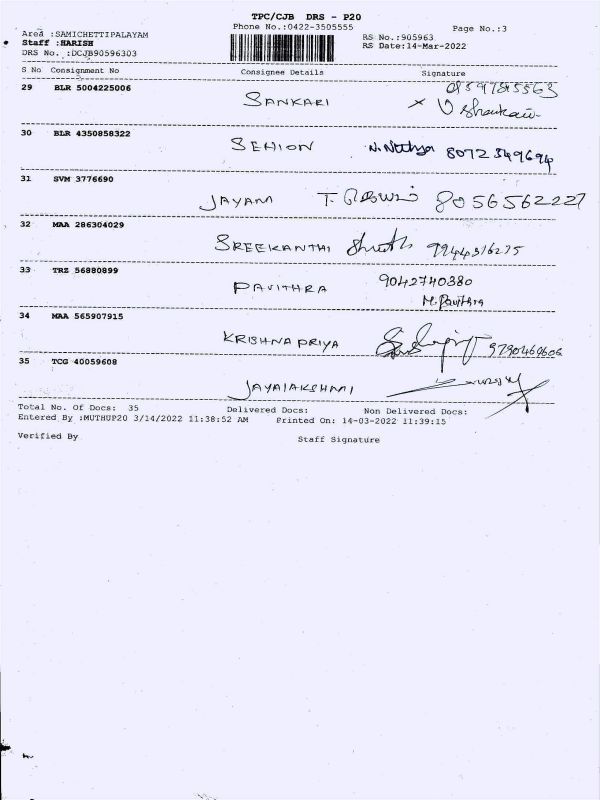 TPC/CJB DRS - P20
Phone No.:0422-3505555
Page No.:3
Area :SAMICHETTIPALAYAM
Staff :HARISH
DRS No. :DCJB90596303
RS No.:905963
RS Date:14-Mar-2022
S No Consignment No Consignee Details Signature
29 BLR 5004225006 SANKARI
30 BLR 4350858322 SEHION N. Nithya 8072349694
31 SVM 3776690 JAYAM 8056562227
32 MAA 286304029 SREEKANTHI 9944316275
33 TRZ 56880899 PAVITHRA 9042740380
M. Pavithra
34 MAA 565907915 KRISHNA PRIYA 9790469606
35 TCG 40059608 JAYALAKSHMI
Total No. Of Docs: 35 Delivered Docs: Non Delivered Docs:
Entered By :MUTHUP20 3/14/2022 11:38:52 AM Printed On: 14-03-2022 11:39:15
Verified By Staff Signature